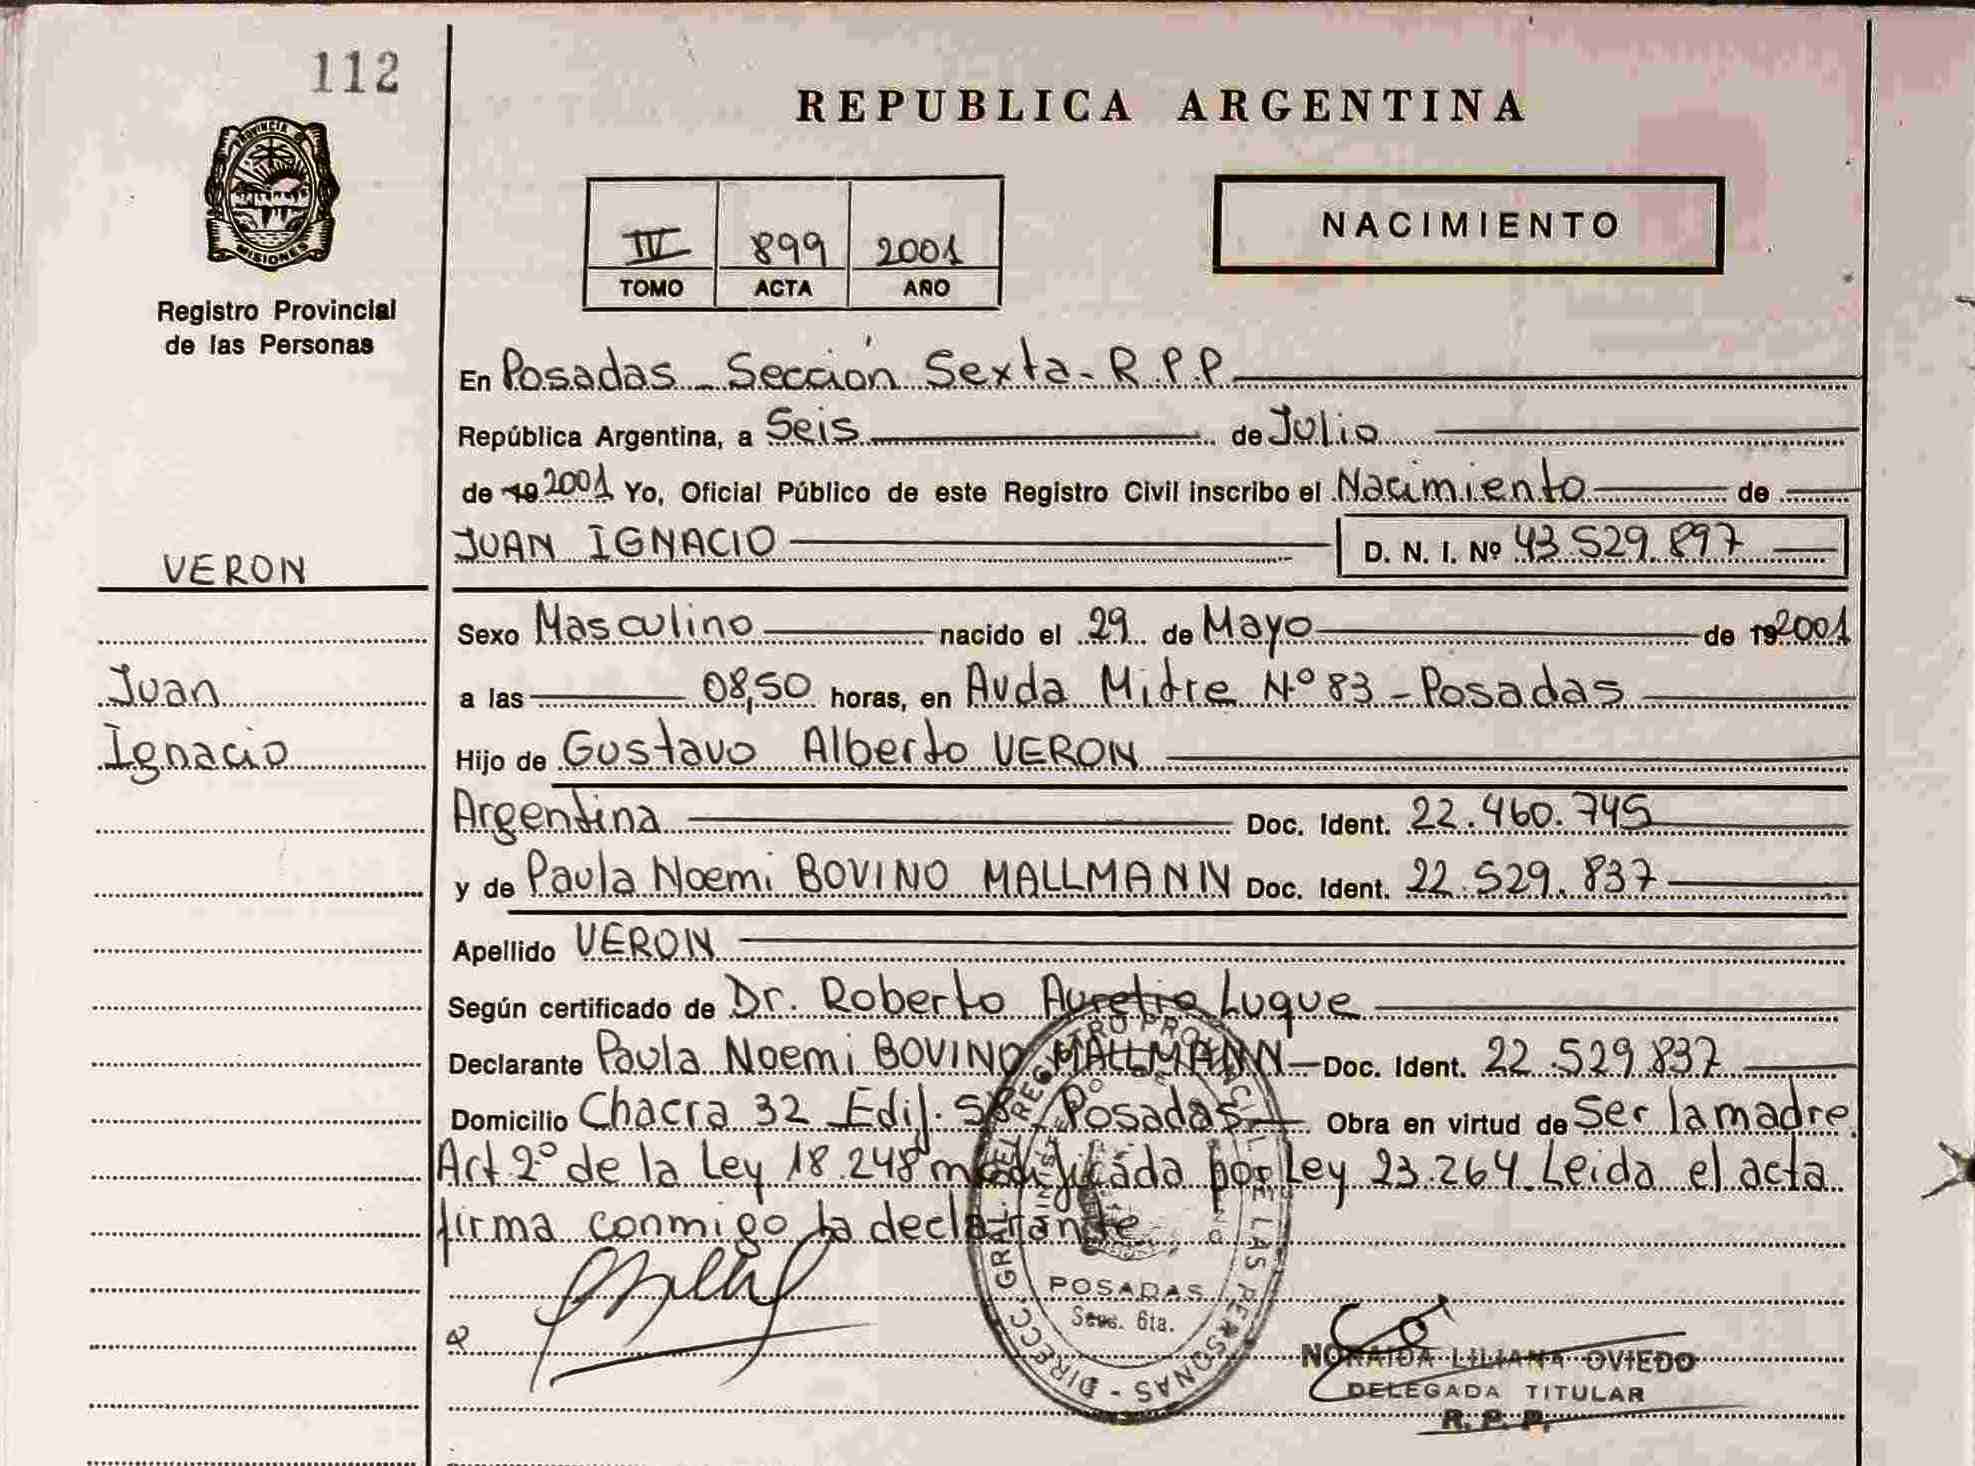 112
REPUBLICA ARGENTINA
PROVINCIA DE
MISIONES
Registro Provincial
de las Personas
IV 899 2001
TOMO ACTA AÑO
NACIMIENTO
En Posadas - Sección Sexta - R.P.P.
República Argentina, a Seis de Julio
de 19 2001 Yo, Oficial Público de este Registro Civil inscribo el Nacimiento de
JUAN IGNACIO D. N. I. Nº 43.529.897
VERON
Sexo Masculino nacido el 29 de Mayo de 19 2001
Juan
a las 08,50 horas, en Avda Mitre Nº 83 - Posadas
Ignacio
Hijo de Gustavo Alberto VERON
Argentina Doc. Ident. 22.460.745
y de Paula Noemi BOVINO MALLMANN Doc. Ident. 22.529.837
Apellido VERON
Según certificado de Dr. Roberto Aurelio Luque
Declarante Paula Noemi BOVINO MALLMANN Doc. Ident. 22.529.837
Domicilio Chacra 32 Edif. Posadas Obra en virtud de Ser la madre.
Art 2º de la Ley 18.248 modificada por Ley 23.264. Leida el acta
firma conmigo la declarante
DIRECC. GRAL. DEL REGISTRO PROVINCIAL DE LAS PERSONAS
POSADAS
Secc. 6ta.
NORAIDA LILIANA OVIEDO
DELEGADA TITULAR
R. P. P.